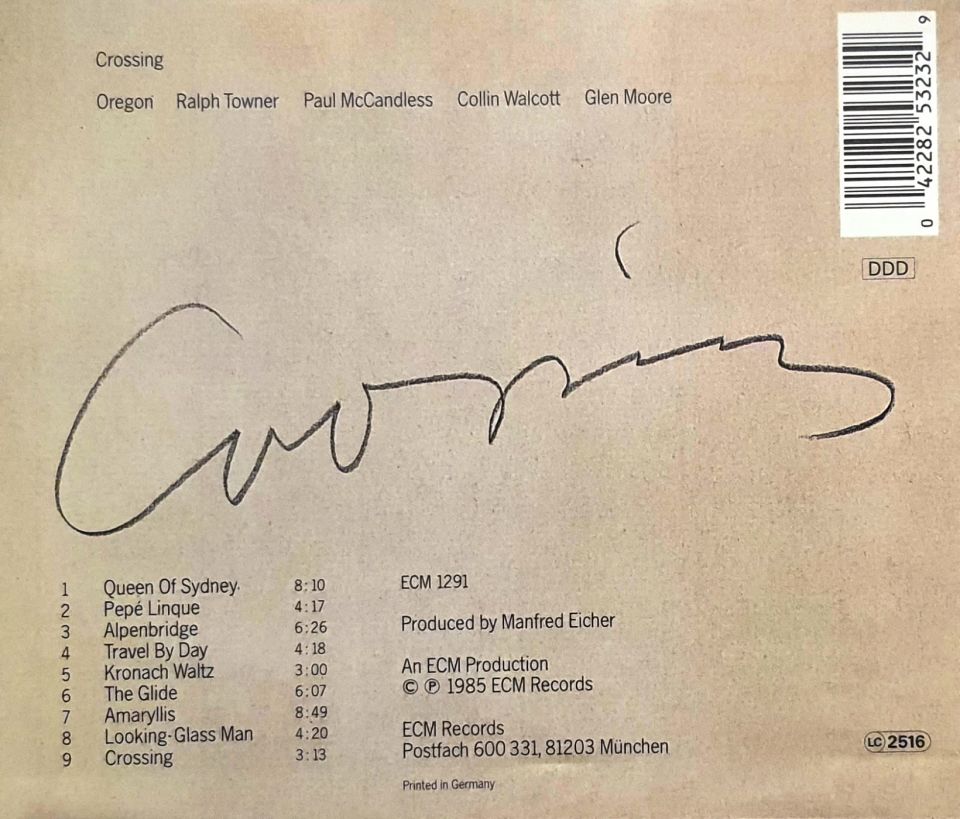 Crossing
Oregon Ralph Towner Paul McCandless Collin Walcott Glen Moore
0 42282 53232 9
DDD
Crossing
1 Queen Of Sydney 8:10
2 Pepé Linque 4:17
3 Alpenbridge 6:26
4 Travel By Day 4:18
5 Kronach Waltz 3:00
6 The Glide 6:07
7 Amaryllis 8:49
8 Looking-Glass Man 4:20
9 Crossing 3:13
ECM 1291
Produced by Manfred Eicher
An ECM Production
© ℗ 1985 ECM Records
ECM Records
Postfach 600 331, 81203 München
Printed in Germany
LC 2516